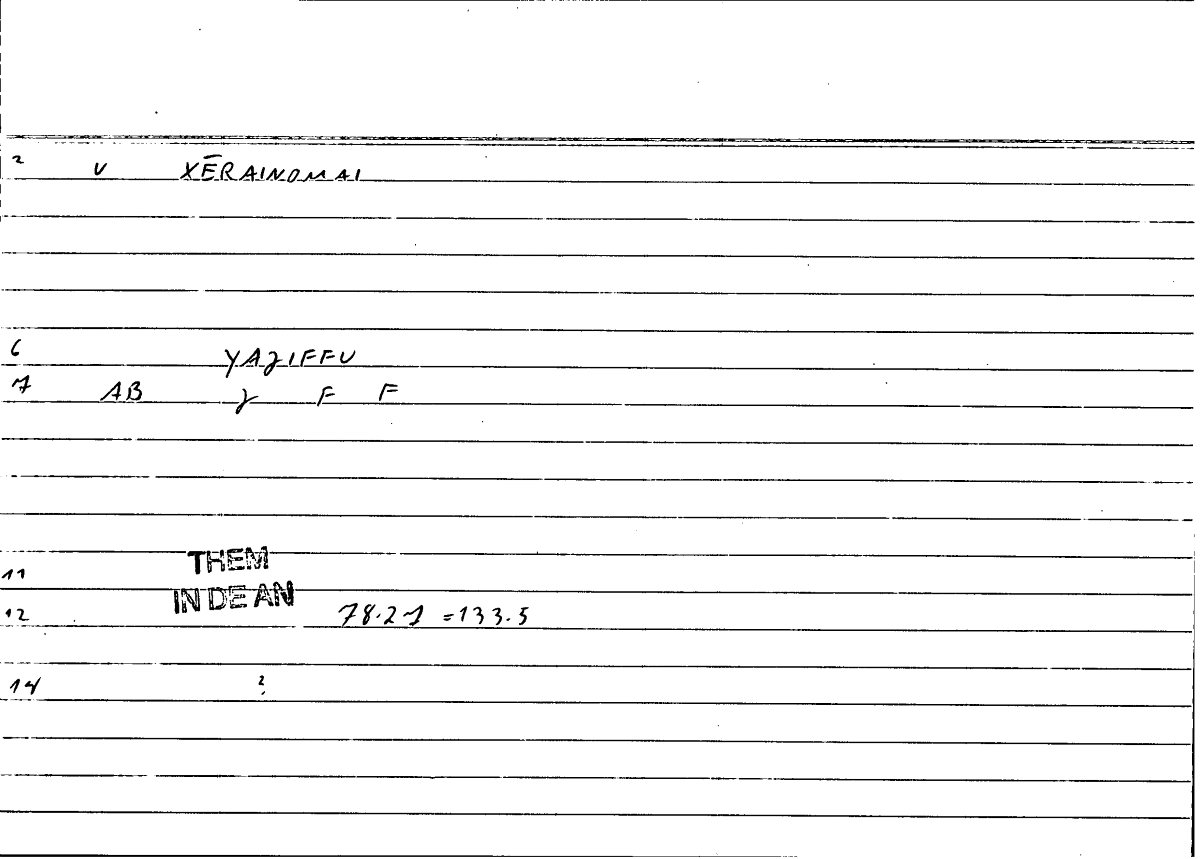 2 V XĒRAINOMAI
6 YAJIFFU
7 AB J F F
11 THEM
12 IN DE AN 78.27 =133.5
14 ?